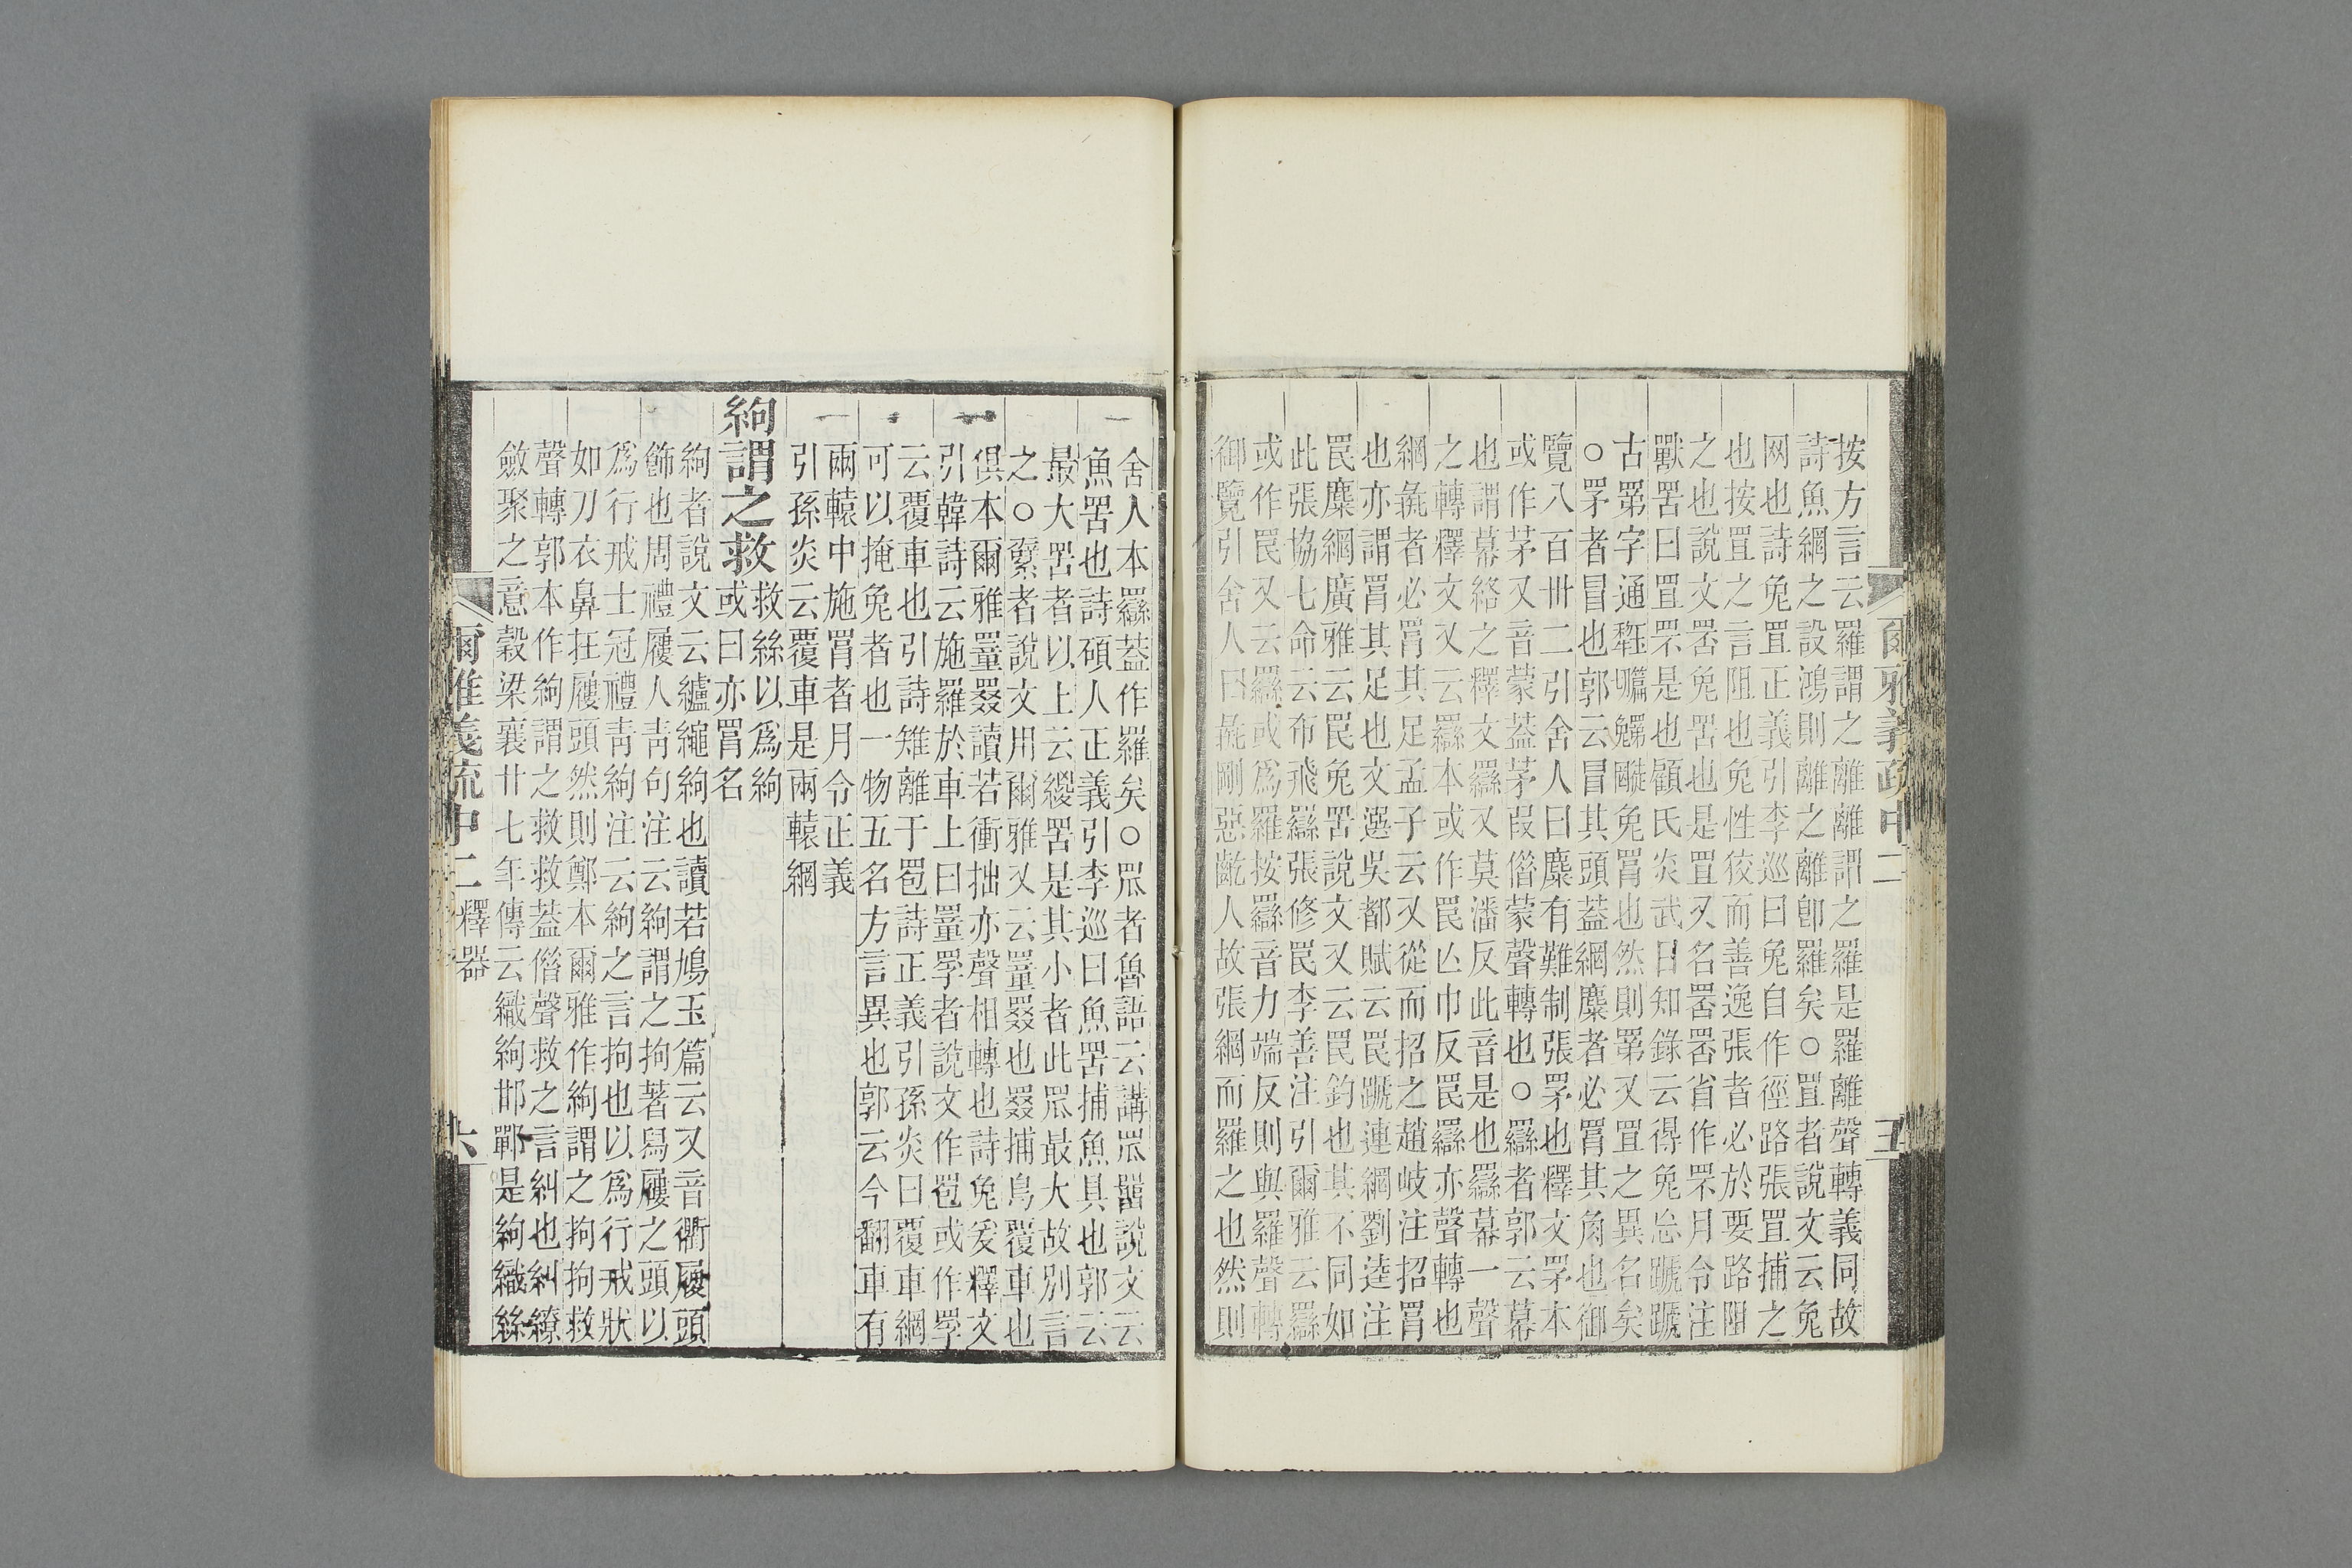 爾雅義疏中二 五
按方言云羅謂之離離謂之羅是羅離聲轉義同故
詩魚網之設鴻則離之離卽羅矣○罝者說文云兔
网也詩兔罝正義引李巡曰兔自作徑路張罝捕之
也按罝之言阻也兔性狡而善逸張者必於要路阻
之也說文兔罟也是罝又名省作罘月令注
獸罟曰罝罘是也顧氏炎武日知錄云得兔忘蹏蹏
古罤字通兔罥也然則罤又罝之異名矣
○罞者冒也郭云冒其頭蓋網麋者必罥其角也御
覽八百卅二引舍人曰麋有難制張罞也釋文罞本
或作茅又音蒙葢茅叚偺蒙聲轉也○羉者郭云幕
也謂幕絡之釋文羉又莫潘反此音是也羉幕一聲
之轉釋文又云羉本或作罠亾巾反罠羉亦聲轉也
網彘者必罥其足孟子云又從而招之趙岐注招罥
也亦謂罥其足也文選吳都賦云罠蹏連網劉逵注
罠麋網廣雅云罠兔罟說文又云罠釣也其不同如
此張協七命云布飛羉張修罠李善注引爾雅云羉
或作罠又云羉或爲羅按羉音力端反則與羅聲轉
御覽引舍人曰彘剛惡齕人故張網而羅之也然則
舍人本羉葢作羅矣○罛者魯語云講罛罶說文云
魚罟也詩碩人正義引李巡曰魚罟捕魚具也郭云
最大罟者以上云緵罟是其小者此罛最大故別言
之○繴者說文用爾雅又云罿罬也罬捕鳥覆車也
俱本爾雅罿罬讀若衝拙亦聲相轉也詩兔爰釋文
引韓詩云施羅於車上曰罿罦者說文作䍖或作罦
云覆車也引詩雉離于䍖詩正義引孫炎曰覆車網
可以掩兔者也一物五名方言異也郭云今翻車有
兩轅中施罥者月令正義
引孫炎云覆車是兩轅網
絇謂之救
救絲以爲絇
或曰亦罥名
絇者說文云纑繩絇也讀若鳩玉篇云又音衢屨頭
飾也周禮屨人靑句注云絇謂之拘著舄屨之頭以
爲行戒士冠禮靑絇注云絇之言拘也以爲行戒狀
如刀衣鼻在屨頭然則鄭本爾雅作絇謂之拘拘救
聲轉郭本作絇謂之救救葢偺聲救之言糾也糾繚
斂聚之意穀梁襄廿七年傳云織絇邯鄲是絇織絲
爾雅義疏中二 釋器 六